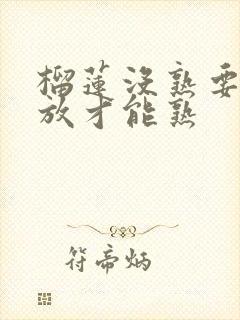 榴莲没熟要
放才能熟
符帝炳